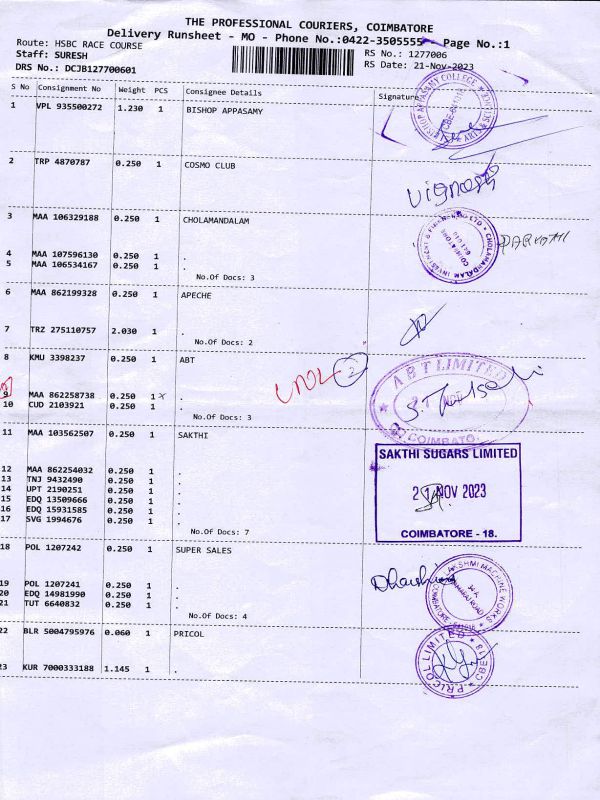 THE PROFESSIONAL COURIERS, COIMBATORE
Delivery Runsheet - MO - Phone No.:0422-3505555 - Page No.:1
Route: HSBC RACE COURSE RS No.: 1277006
Staff: SURESH RS Date: 21-Nov-2023
DRS No.: DCJB127700601
S No Consignment No Weight PCS Consignee Details Signature
1 VPL 935500272 1.230 1 BISHOP APPASAMY
2 TRP 4870787 0.250 1 COSMO CLUB
Vignesh
3 MAA 106329188 0.250 1 CHOLAMANDALAM
PARVATHI
4 MAA 107596130 0.250 1 .
5 MAA 106534167 0.250 1 .
No.Of Docs: 3
6 MAA 862199328 0.250 1 APECHE
7 TRZ 275110757 2.030 1 .
No.Of Docs: 2
8 KMU 3398237 0.250 1 ABT
2
ABT LIMITED
9 MAA 862258738 0.250 1 x .
10 CUD 2103921 0.250 1 .
No.Of Docs: 3
COIMBATO
11 MAA 103562507 0.250 1 SAKTHI
SAKTHI SUGARS LIMITED
12 MAA 862254032 0.250 1 .
13 TNJ 9432490 0.250 1 .
14 UPT 2190251 0.250 1 .
15 EDQ 13509666 0.250 1 .
16 EDQ 15931585 0.250 1 .
17 SVG 1994676 0.250 1 .
21 NOV 2023
No.Of Docs: 7
COIMBATORE - 18.
18 POL 1207242 0.250 1 SUPER SALES
19 POL 1207241 0.250 1 .
20 EDQ 14981990 0.250 1 .
21 TUT 6640832 0.250 1 .
No.Of Docs: 4
22 BLR 5004795976 0.060 1 PRICOL
PRICOL LIMITED
CBE 18
23 KUR 7000333188 1.145 1 .